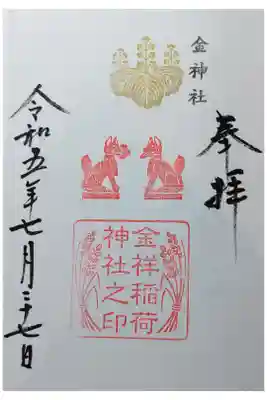 奉拝
金神社
金祥稲荷
神社之印
令和五年七月二十七日